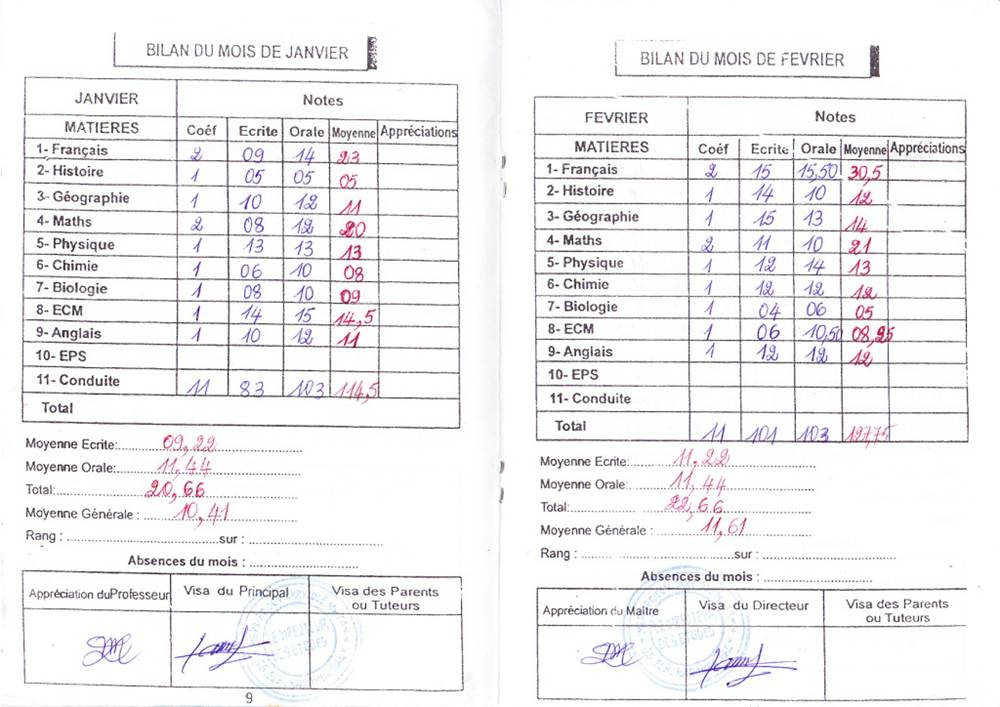 BILAN DU MOIS DE JANVIER
JANVIER Notes
MATIERES Coéf Ecrite Orale Moyenne Appréciations
1- Français 2 09 14 23
2- Histoire 1 05 05 05
3- Géographie 1 10 12 11
4- Maths 2 08 12 20
5- Physique 1 13 13 13
6- Chimie 1 06 10 08
7- Biologie 1 08 10 09
8- ECM 1 14 15 14,5
9- Anglais 1 10 12 11
10- EPS
11- Conduite 11 83 103 114,5
Total
Moyenne Ecrite: 09,22
Moyenne Orale: 11,44
Total: 20,66
Moyenne Générale : 10,41
Rang : sur :
Absences du mois :
Appréciation duProfesseur Visa du Principal Visa des Parents
ou Tuteurs
9
BILAN DU MOIS DE FEVRIER
FEVRIER Notes
MATIERES Coéf Ecrite Orale Moyenne Appréciations
1- Français 2 15 15,50 30,5
2- Histoire 1 14 10 12
3- Géographie 1 15 13 14
4- Maths 2 11 10 21
5- Physique 1 12 14 13
6- Chimie 1 12 12 12
7- Biologie 1 04 06 05
8- ECM 1 06 10,50 08,25
9- Anglais 1 12 12 12
10- EPS
11- Conduite
Total 11 101 103 127,75
Moyenne Ecrite: 11,22
Moyenne Orale: 11,44
Total: 22,66
Moyenne Générale : 11,61
Rang : sur :
Absences du mois :
Appréciation du Maître Visa du Directeur Visa des Parents
ou Tuteurs
LE DIRECTEUR
DES ETUDES